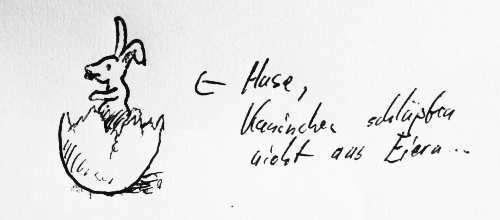 ← Hase,
Kaninchen schlüpfen
nicht aus Eiern...